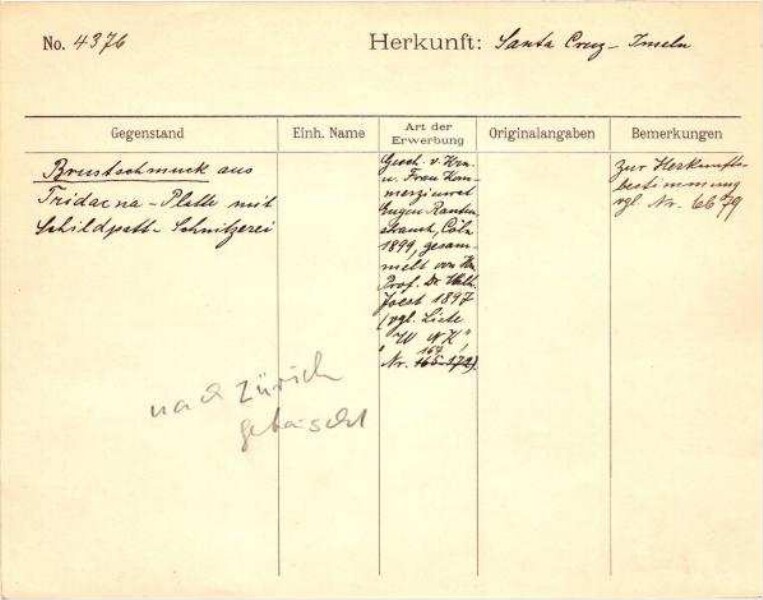 No. 4376
Herkunft: Santa Cruz - Inseln
Gegenstand
Einh. Name
Art der
Erwerbung
Originalangaben
Bemerkungen
Brustschmuck aus
Tridacna - Platte mit
Schildpatt- Schnitzerei
Gesch. v. Hrn.
u. Frau Kom-
merzienrat
Eugen Rauten-
strauch, Cöln
1899, gesam-
melt von Hn.
Prof. Dr. Wilh.
Joest 1897
(vgl. Liste
Nr. 165-172)
167
zur Herkunfts-
bestimmung
vgl. Nr. 6679
nach Zürich
getauscht